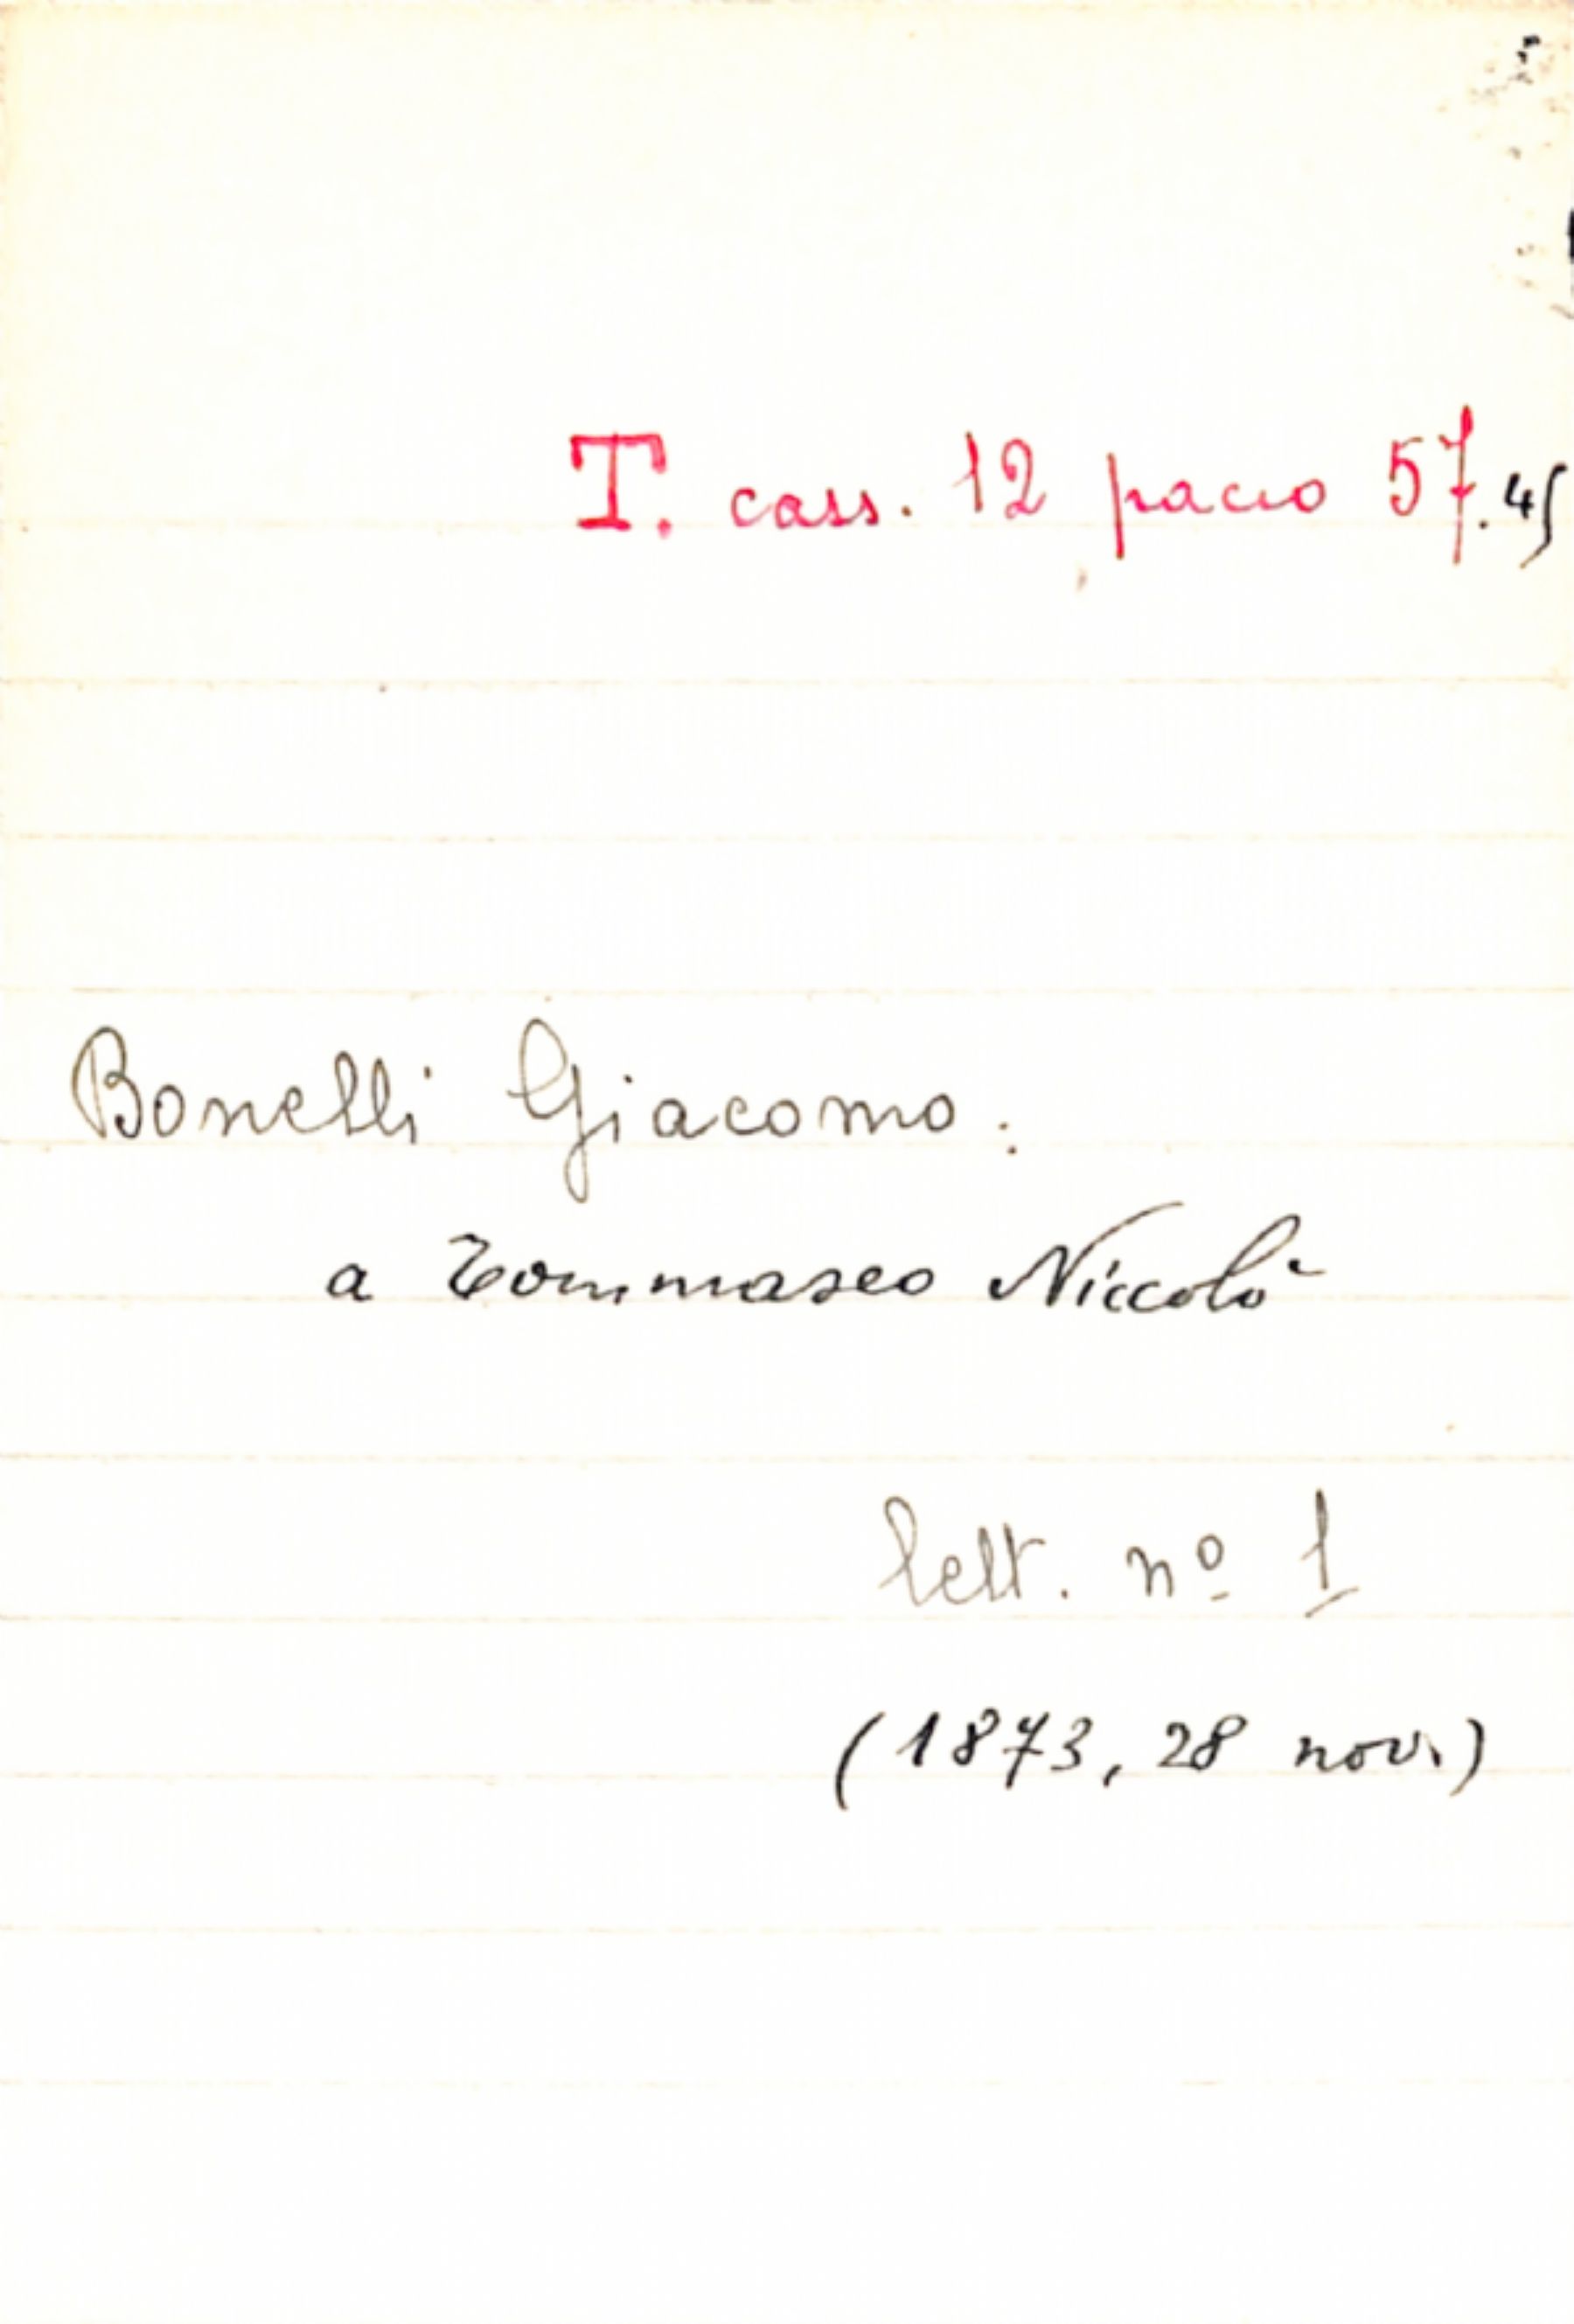 T. cass. 12 pacco 57.45
Bonelli Giacomo:
a Tommaseo Niccolò
lett. nº 1
(1873, 28 nov.)